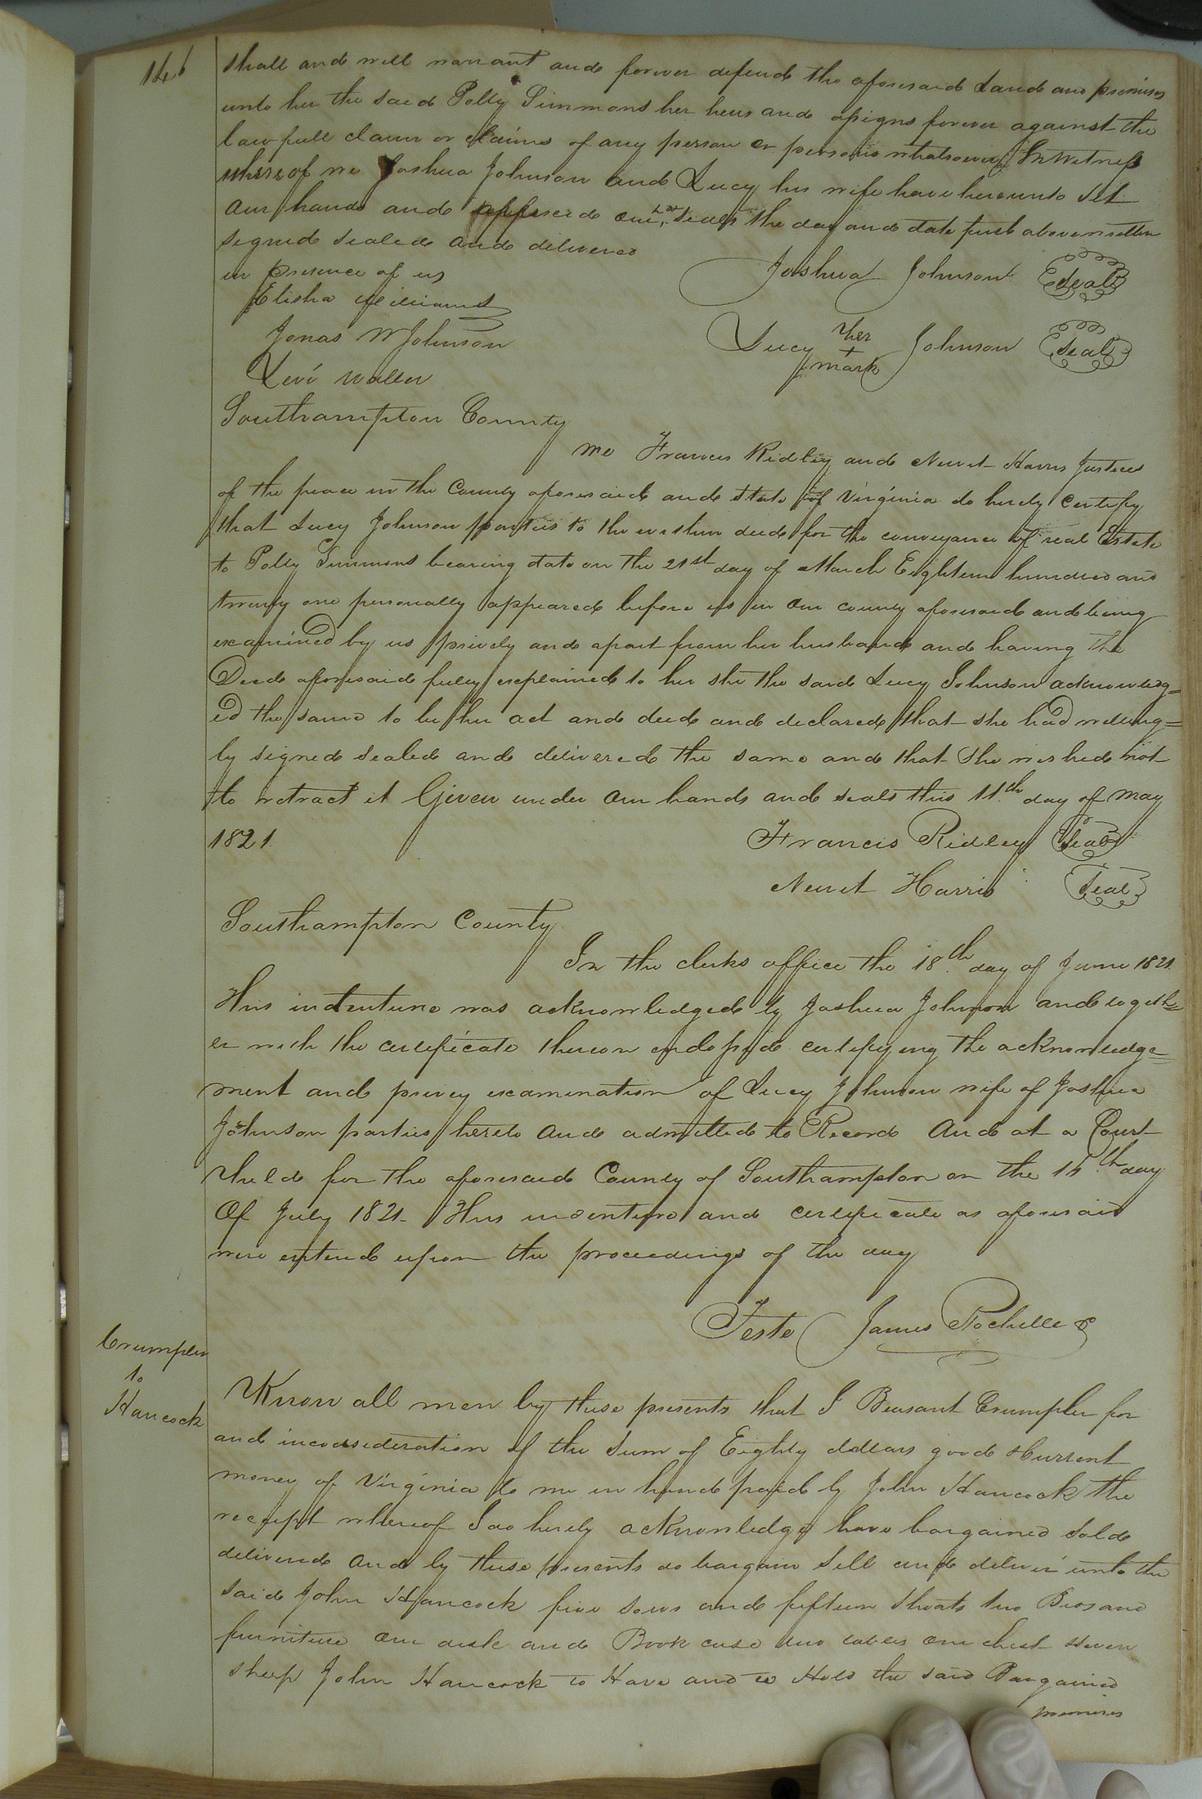 146
shall and will warrant and forever defend the aforesaid Land and premises
unto her the said Polly Simmons her heirs and assigns forever against the
lawfull claim or claims of any person or persons whatsoever In Witness
whereof we Joshua Johnson and Lucy his wife have hereunto set
Our hands and affixed our seals the day and date first above written
Signed sealed and delivered
in presence of us
Joshua Johnson Seal
Elisha Williams
Jonas W Johnson
Lucy her + mark Johnson Seal
Levi Waller
Southampton County
We Francis Ridley and Newit Harris Justices
of the peace in the County aforesaid and state of Virginia do hereby certify
that Lucy Johnson parties to the within deed for the conveyance of real Estate
to Polly Simmons bearing date on the 21st day of March Eighteen hundred and
twenty one personally appeared before us in our county aforesaid and being
examined by us privily and apart from her husband and having the
Deed aforesaid fully explained to her she the said Lucy Johnson acknowledg=
ed the same to be her act and deed and declared that she had willing=
ly signed sealed and delivered the same and that she wished not
to retract it Given under our hands and seals this 11th day of May
1821
Francis Ridley Seal
Newit Harris Seal
Southampton County
In the clerks office the 18th day of June 1821
This indenture was acknowledged by Joshua Johnson and togeth=
er with the certificate thereon endorsed certifying the acknowledge=
ment and privey examination of Lucy Johnson wife of Joshua
Johnson parties hereto and admitted to Record And at a Court
held for the aforesaid County of Southampton on the 16th day
Of July 1821 This indenture and certificate as aforesaid
were entered upon the proceedings of the day
Teste James Rochelle C
Crumpler
to
Hancock
Know all men by these presents that I Beasant Crumpler for
and inconsideration of the Sum of Eighty dollars good & current
money of Virginia to me in hand paid by John Hancock the
receipt whereof I do hereby acknowledge have bargained Sold
delivered and by these presents do bargain Sell and deliver unto the
said John Hancock five sows and fifteen Shoats two Beds and
furniture one desk and Book case two tables one chest seven
sheep John Hancock to Have and to Hold the said Bargained
premises